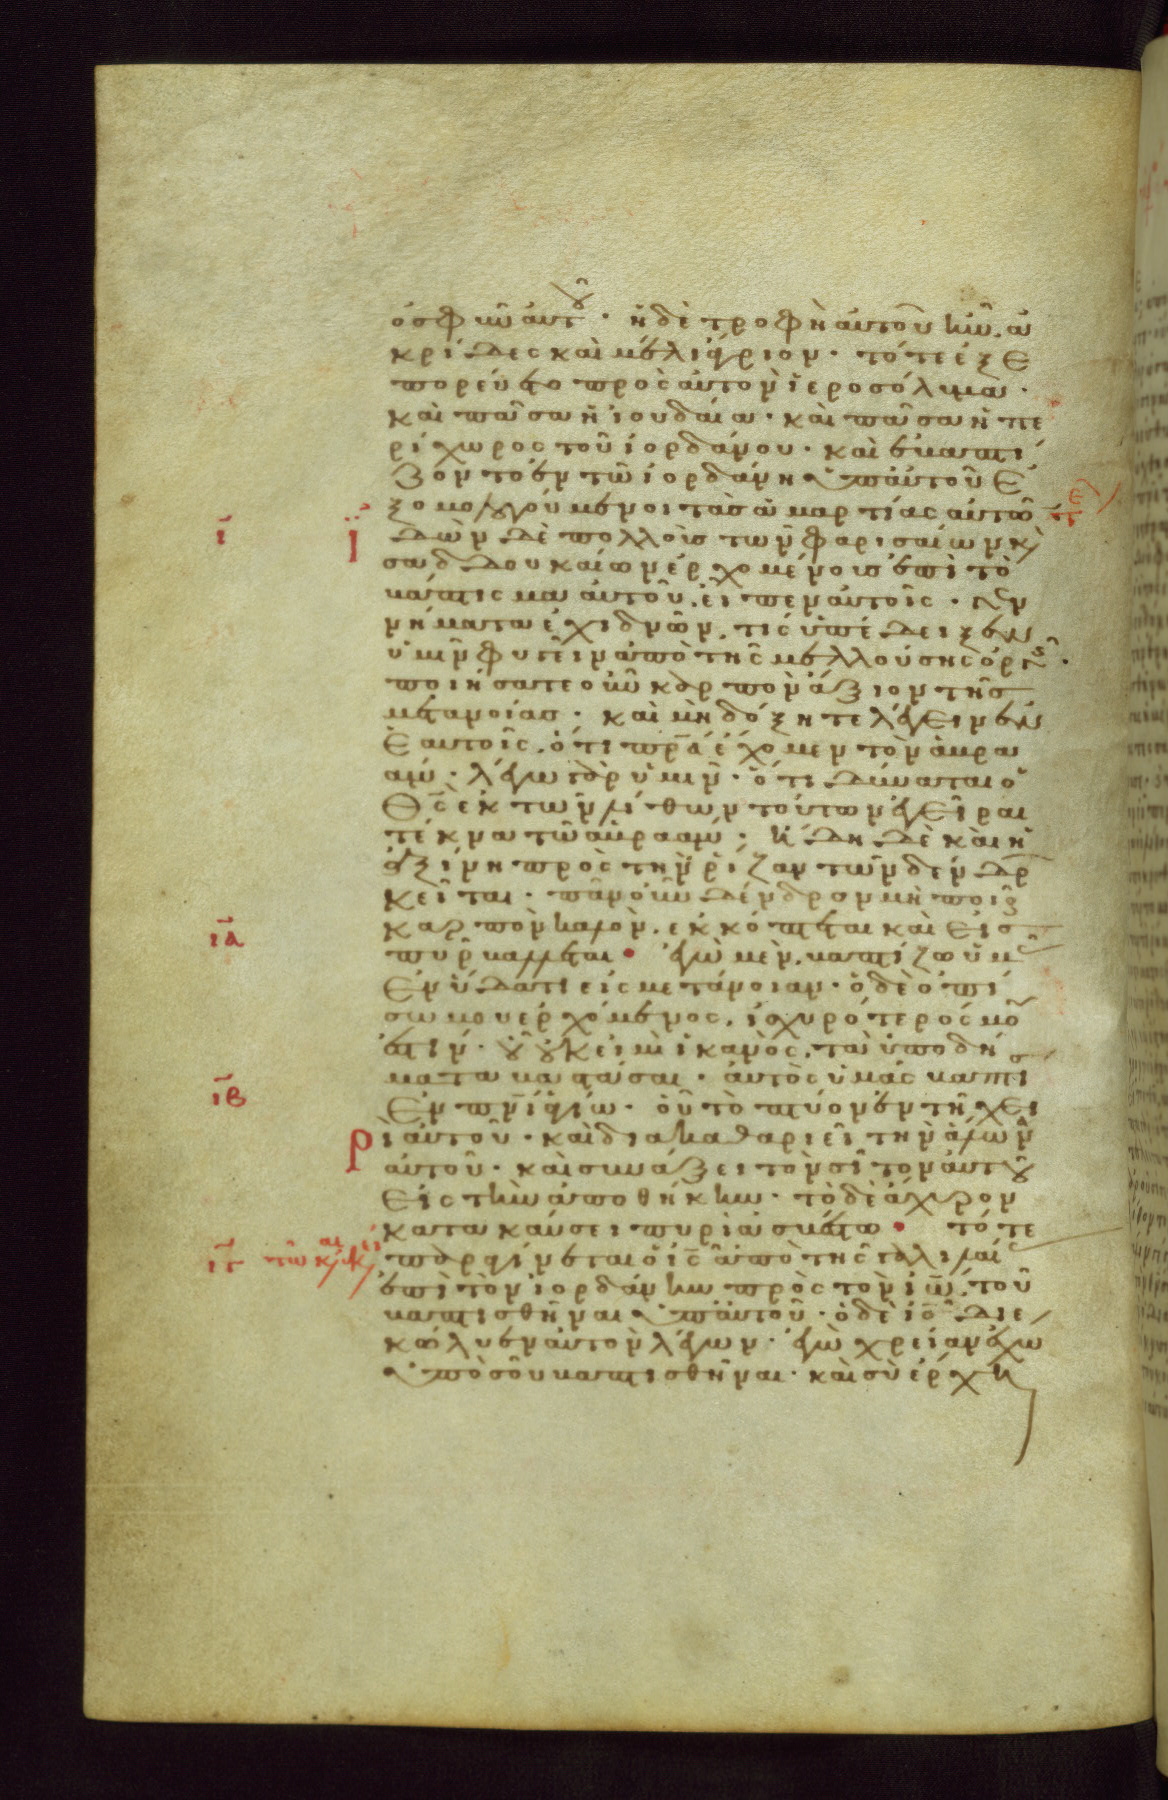 ὀσφὺν αὐτοῦ· ἡ δὲ τροφὴ αὐτοῦ ἦν, ἀ
κρίδες καὶ μέλι ἄγριον· τότε ἐξε
πορεύετο πρὸς αὐτὸν ἱεροσόλυμα·
καὶ πᾶσα ἡ ἰουδαία· καὶ πᾶσα ἡ πε
ρίχωρος τοῦ ἰορδάνου· καὶ ἐβαπτί
ζοντο ἐν τῶ ἰορδάνη ὑπ' αὐτοῦ ἐ
ξομολογούμενοι τὰς ἁμαρτίας αὐτῶ
ι Ἰδὼν δὲ πολλοὺς τῶν φαρισαίων κ
σαδδουκαίων ἐρχομένους ἐπὶ τὸ
βάπτισμα αὐτοῦ, εἶπεν αὐτοῖς· γεν
νήματα ἐχιδνῶν, τίς ὑπέδειξεν
ὑμῖν φυγεῖν ἀπὸ τῆς μελλούσης ὀργῆς·
ποιήσατε οὖν καρπὸν ἄξιον τῆς
μετανοίας· καὶ μὴ δόξητε λέγειν ἐν
ἑαυτοῖς, ὅτι πρα ἔχομεν τὸν ἀβρα
άμ· λέγω γὰρ ὑμῖν· ὅτι δύναται ὁ
θς ἐκ τῶν λίθων τούτων ἐγεῖραι
τέκνα τῶ ἀβραάμ· ἤδη δὲ καὶ ἡ
ἀξίνη πρὸς τὴν ῥίζαν τῶν δένδρ
κεῖται· πᾶν οὖν δένδρον μὴ ποιοῦ
ια καρπὸν καλὸν, ἐκκόπτεται καὶ εἰς
πῦρ βάλλεται· ἐγὼ μὲν, βαπτίζω ὑμ
ἐν ὕδατι εἰς μετάνοιαν· ὁ δὲ ὀπί
σω μου ἐρχόμενος, ἰσχυρότερός μου
ἐστιν· οὗ οὐκ εἰμὶ ἱκανὸς, τὰ ὑποδή
ιβ ματα βαστάσαι· αὐτὸς ὑμᾶς βαπτίσ
ἐν πνι ἁγίω· οὗ τὸ πτύον ἐν τῆ χει
ρὶ αὐτοῦ· καὶ διακαθαριεῖ τὴν ἅλων
αὐτοῦ· καὶ συνάξει τὸν σῖτον αὐτοῦ
εἰς τὴν ἀποθήκην· τὸ δὲ ἄχυρον
κατακαύσει πυρὶ ἀσβέστω· τότε
ιγ παραγίνεται ὁ ις ἀπὸ τῆς γαλιλαί
ἐπὶ τὸν ἰορδάνην πρὸς τὸν ἰω, τοῦ
βαπτισθῆναι ὑπ' αὐτοῦ· ὁ δὲ ἰω διε
κώλυεν αὐτὸν λέγων· ἐγὼ χρείαν ἔχω
ὑπὸ σοῦ βαπτισθῆναι· καὶ σὺ ἔρχη